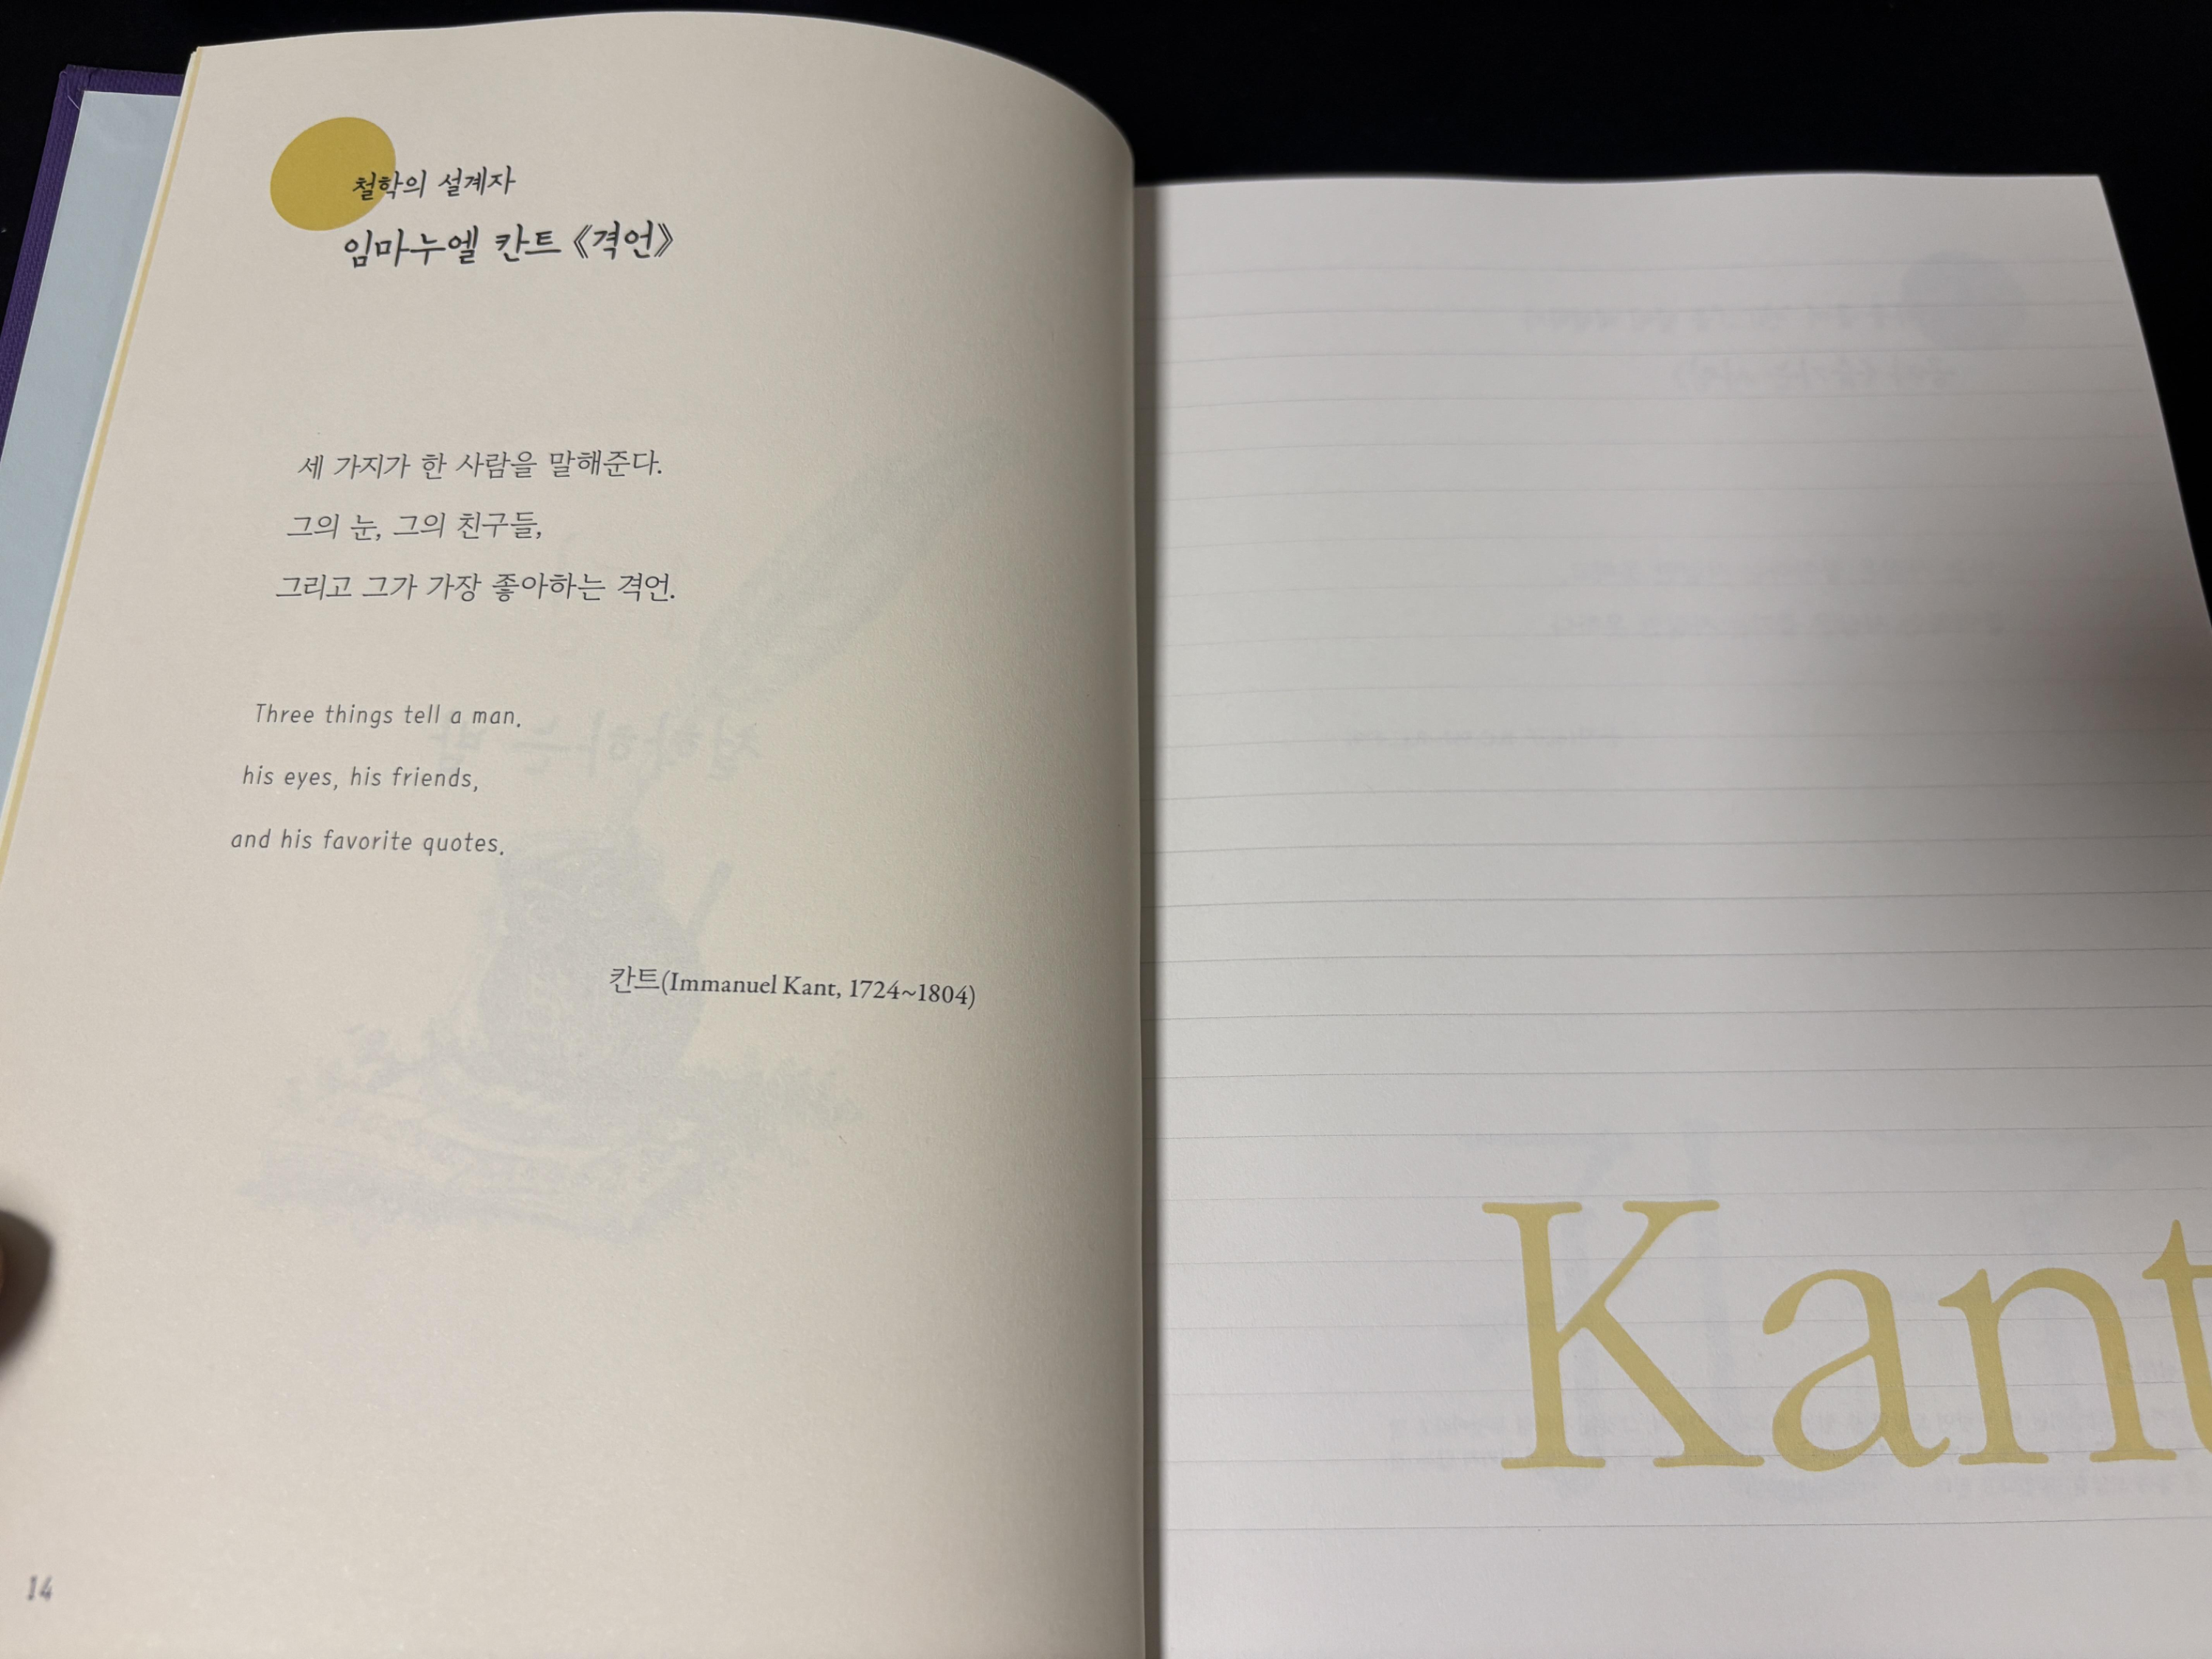 철학의 설계자
임마누엘 칸트 《격언》
세 가지가 한 사람을 말해준다.
그의 눈, 그의 친구들,
그리고 그가 가장 좋아하는 격언.
Three things tell a man.
his eyes, his friends,
and his favorite quotes.
칸트(Immanuel Kant, 1724~1804)
14
Kant